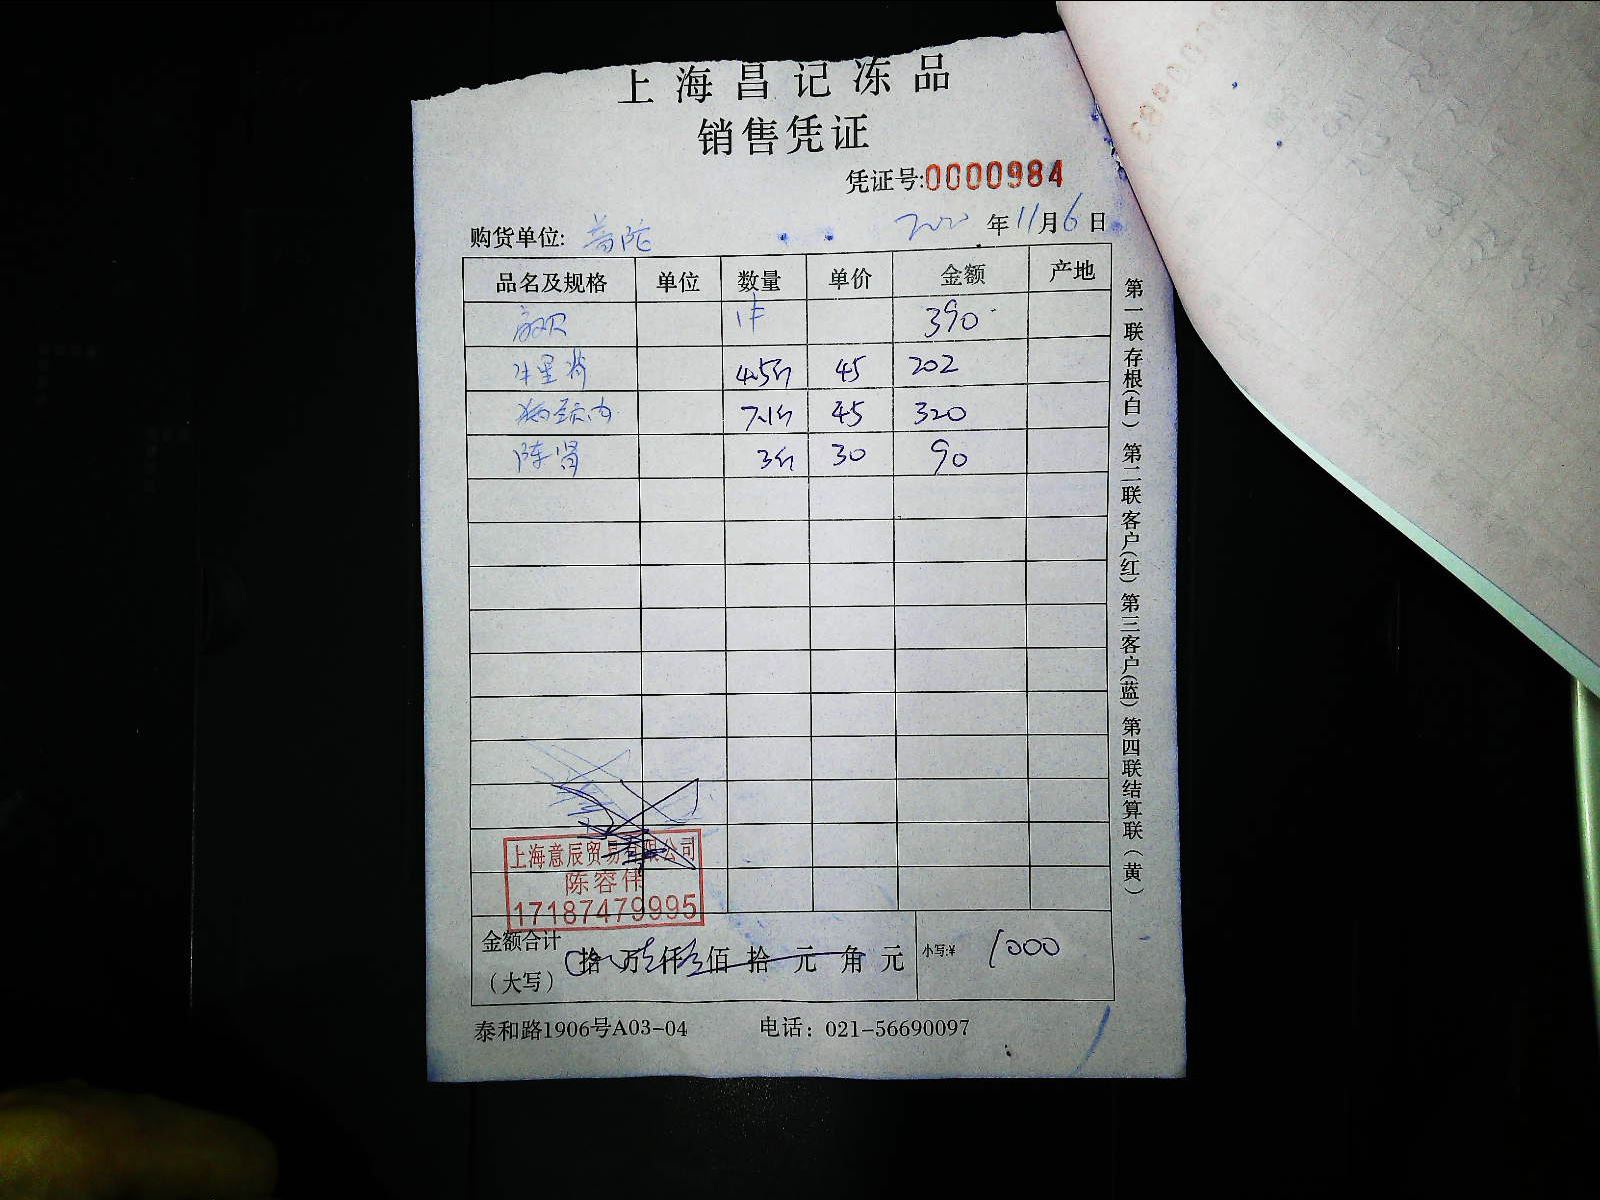 上海昌记冻品
销售凭证
凭证号:0000984
购货单位: 普陀 2020年11月6日
品名及规格 单位 数量 单价 金额 产地
1件 390
4.5斤 45 202
7.1斤 45 320
3斤 30 90
上海意辰贸易有限公司
陈容伟
17187479995
金额合计
（大写） 拾 万 仟 佰 拾 元 角 元 小写:¥ 1000
泰和路1906号A03-04 电话：021-56690097
第一联存根(白) 第二联客户(红) 第三客户(蓝) 第四联结算联（黄）